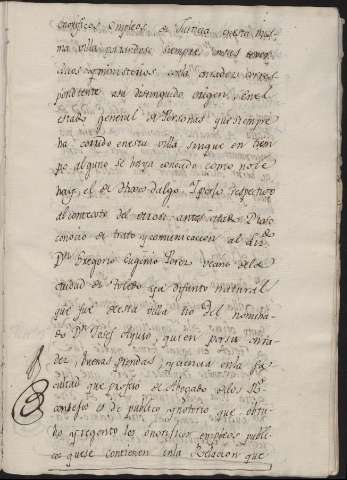 onorificos Empleos de Justicia en esta mis-
ma villa portandose siempre en sus
y ministerios con la onrades corres
pondiente a su distinguido origen, En el
estado general de Personas que siempre
ha corrido en esta villa, sin que en tiem
po alguno se haya conocido como no le
hay, el de Dho Yjo dalgo. Y por lo respectivo
al contexto del otrosi antes citado Dijo
conocio de trato y comunicacion al
Dn Gregorio Eugenio Perez vecino de la
ciudad de Toledo ya difunto natural
que fue de esta villa tio del nomina-
do Dn Josef Aguso, quien por su onrra
dez, buenas prendas, y ciencia en la fa
cultad que profeso de Abogado de los Rs
consejos es de publico y notorio que obtu-
bo y regento los onorificos empleos publi-
cos que se contienen en la Relacion que